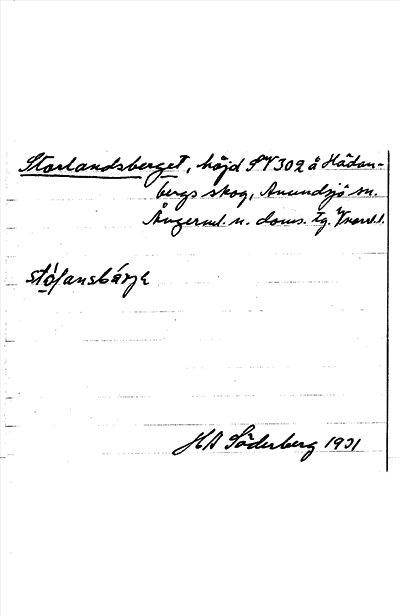 Storlandsberget, höjd SV 302 å Hädan-
bergs skog, Anundsjö sn.
Ångerml. n. doms. tg. Vnorrl. l.
stólansbärje
HA Söderberg 1931